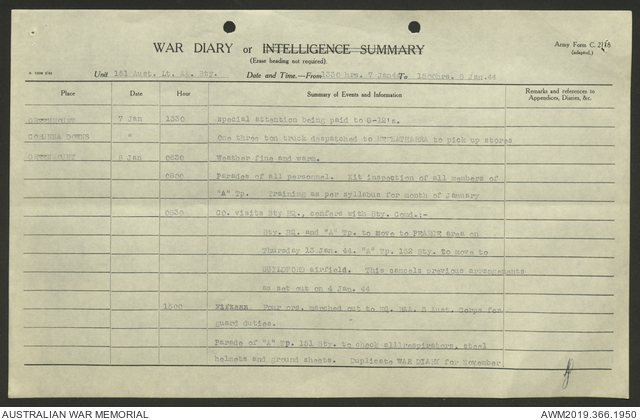 WAR DIARY or INTELLIGENCE SUMMARY
(Erase heading not required).
Army Form C. 2118
(adapted.)
Unit 151 Aust. Lt. AA. Bty. Date and Time.—From 1330 hrs. 7 Jan44 To 1500hrs. 8 Jan.44
Place Date Hour Summary of Events and Information Remarks and references to Appendices, Diaries, &c.
7 Jan 1330 special attention being paid to G-12's.
CORUNNA DOWNS " One three ton truck despatched to MEEKATHARRA to pick up stores
8 Jan 0630 Weather fine and warm.
0800 Parades of all personnel. Kit inspection of all members of
"A" Tp. Training as per syllabus for month of January
0930 CO. visits Bty HQ., confers with Bty. Comd.:-
Bty. HQ. and "A" Tp. to move to PEARCE area on
Thursday 13 Jan. 44. "A" Tp. 152 Bty. to move to
GUILDFORD airfield. This cancels previous arrangements
as set out on 4 Jan. 44
1500 Fifteen Four ors. marched out to HQ. RAA. 3 Aust. Corps for
guard duties.
Parade of "A" Tp. 151 Bty. to check all respirators, steel
helmets and ground sheets. Duplicate WAR DIARY for November
AUSTRALIAN WAR MEMORIAL AWM2019.366.1950